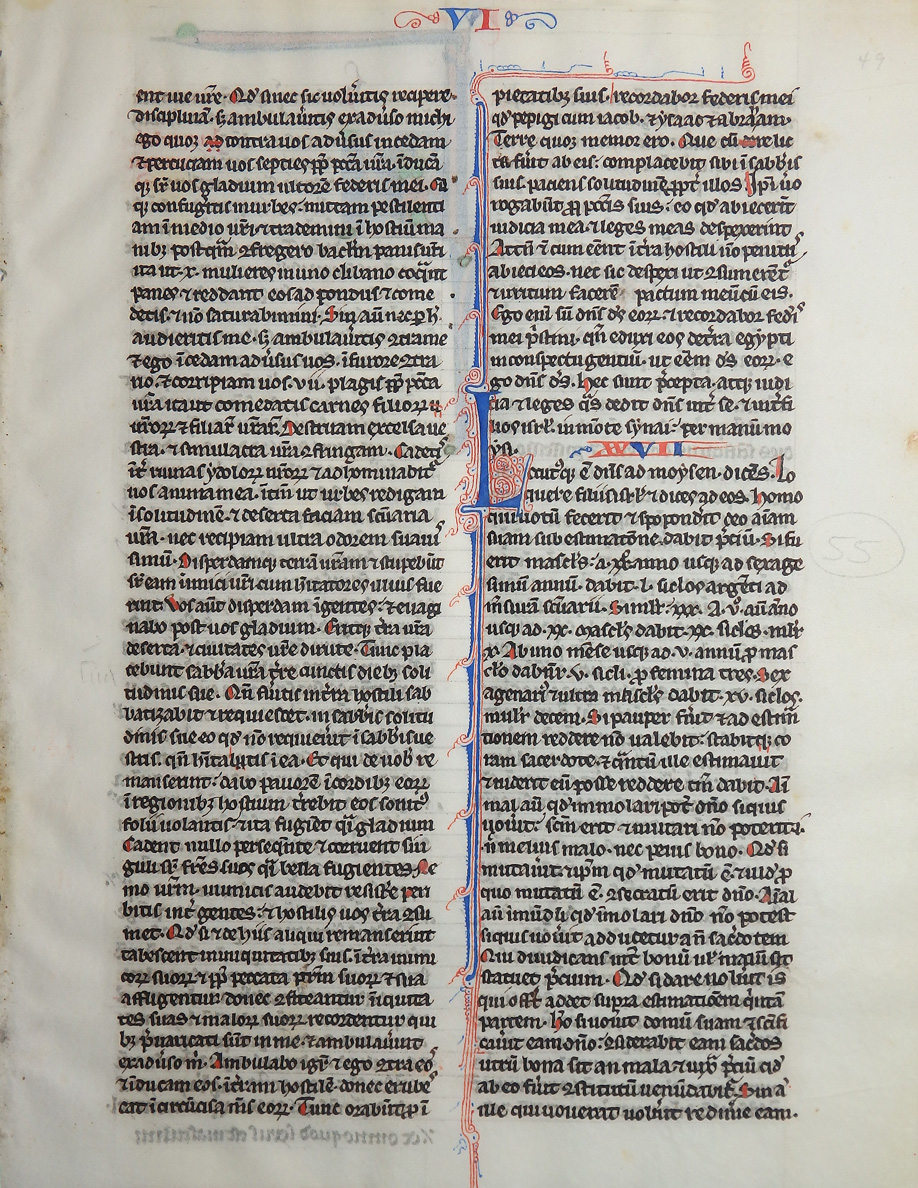 VI
ent iue ure. Qd' si nec sic uolu'itis recipere
disciplina. s; ambulau'itis ex adu'so michi
ego quoq; contra uos adu'sus incedam
& percuciam uos septies pp pcca ura. iduca
q; sr uos gladium ultore federis mei. Cu
q; confugitis in urbes. mittam pestilenti
am i medio uri & trademini i hostiu ma
nib; postqm 2fregero baclm panis uri
ita ut .x. mulieres in uno clibano coqnt
panes & reddant eos ad pondus & come
detis & no saturabimini. Sin au nec p h'
audieritis me. s; ambulau'itis 2tra me
& ego icedam adu'sus uos. i furore 2tra
rio. & corripiam uos .vii. plagis pp pcca
ura ita ut comedatis carnes filior u
uror & filiar urar. Destruam excelsa ue
stra. & simulacra ura 2fringam. Cadetis
it' ruinas ydolor uror & adhominabit'
uos anima mea. itm ut urbes redigam
i solitudine. & deserta faciam scuaria
ura. nec recipiam ultra odorem suaui
simu. Disperdamq; terra uram & stupebut
sr eam inimici uri cum hitatores illius fue
rint. Vos aut disperdam i gentes. & euagi
nabo post uos gladium. Eritq; t'ra ura
deserta. & ciuitates ure dirute. Tunc pla
cebunt sabba ura t're cunctis dieb; soli
tudinis sue. Qn fu'itis in t'ra hostili sab
batizabit & requiescet. in sabbis solitu
dinis sue eo qd' no requieu'it i sabbis ue
stris. qn hitabatis i ea. Et qui de uob' re
manserint. dabo pauore i cordib; eor
i regionib; hostium t'rebit eos sonit'
folii uolantis. & ita fugiet qi gladium
Cadent nullo persequnte & corruent sin
guli sr fres suos qi bella fugientes. Ne
mo urm. inimicis audebit resist'e peri
bitis int' gentes. & hostilis uos t'ra 2su
met. Qd' si & de hiis aliqui remanserint
tabescent in iniquitatib; suis. i t'ra inimi
cor suor & pp peccata prm suor & sua
affligentur donec 2fiteantur iniquita
tes suas & malor suor recordentur qui
b; p'uaricati sut in me. & ambulau'int
ex adu'so m'. Ambulabo igr & ego 2tra eos
& iducam eos. i t'ram hostile. donec erube
cat i circucisa ms eor. Tunc orabut p i
pietatib; suis. recordabor federis mei
qd' pepigi cum iacob. & ysaac & abraham.
Terre quoq; memor ero. Que cu derelic
ta fu'it ab eis. complacebit sibi i sabbis
suis. paciens solitudine ppt' illos. Ipi uo
rogabut p pccis suis. eo qd' abiecerit
iudicia mea & leges meas despexerint
Attn & cum eent i t'ra hostili no penit'
abieci eos. nec sic despexi ut 2sumerent'
& irritum facere pactum meu cu eis.
Ego eni su dns ds eor. & recordabor fedis
mei p'stini. qn eduxi eos de t'ra egypti
in conspectu gentiu. ut eem ds eor. e
go dns ds. Hec sunt p'cepta. atq; iudi
cia & leges qs dedit dns int' se. & int' fi
lios isrl. in mote synai. per manu mo
ysi. XXVII
Locutq; e dns ad moysen. dices. Lo
quere filiis isrl & dices ad eos. Homo
qui uotu fecerit & spopond'it deo aiam
suam sub estimatone. dabit p'ciu. Si fu
erit mascls. a .xx. anno usq; ad sexage
simu annu. dabit .l. siclos argenti ad
m'sura scuarii. Si mulr. xxx. A .v. au ano
usq; ad .xx. mascls dabit .xx. siclos. mlr
.x. Ab uno mense usq; ad .v. annu. p mas
clo dabntr .v. sicli. p femina tres. Sex
agenari' & ultra mascls dabit .xv. siclos.
mulr decem. Si pauper fu'it & ad estim
tionem reddere no ualebit. stabitq; co
ram sacerdote. & qntu ille estimauit
& uiderit eu posse reddere tm dabit. Ai
mal au qd' immolari pot' dno si quis
uou'it. scm erit & mutari no poterit.
n melius malo. nec peius bono. Qd' si
mutau'it. & ipm qd' mutatu e. & illd' p
quo mutatu e. 2secratu erit dno. Aial
au imudu qd' imolari dno no potest
si quis uou'it adducetur an sacdotem
Qui diiudicans utr bonu ul' malu sit
statuet p'cium. Qd' si dare uolu'it is
qui offt. addet supra estimatioem qinta
partem. Ho si uou'it domu suam & scifi
cau'it eam dno. 2siderabit eam sacdos
utru bona sit an mala. & iux' p'ciu qd'
ab eo fu'it 2stitutu uenudabit'. Sin a
ille qui uouerat uolu'it redime eam.
55
49